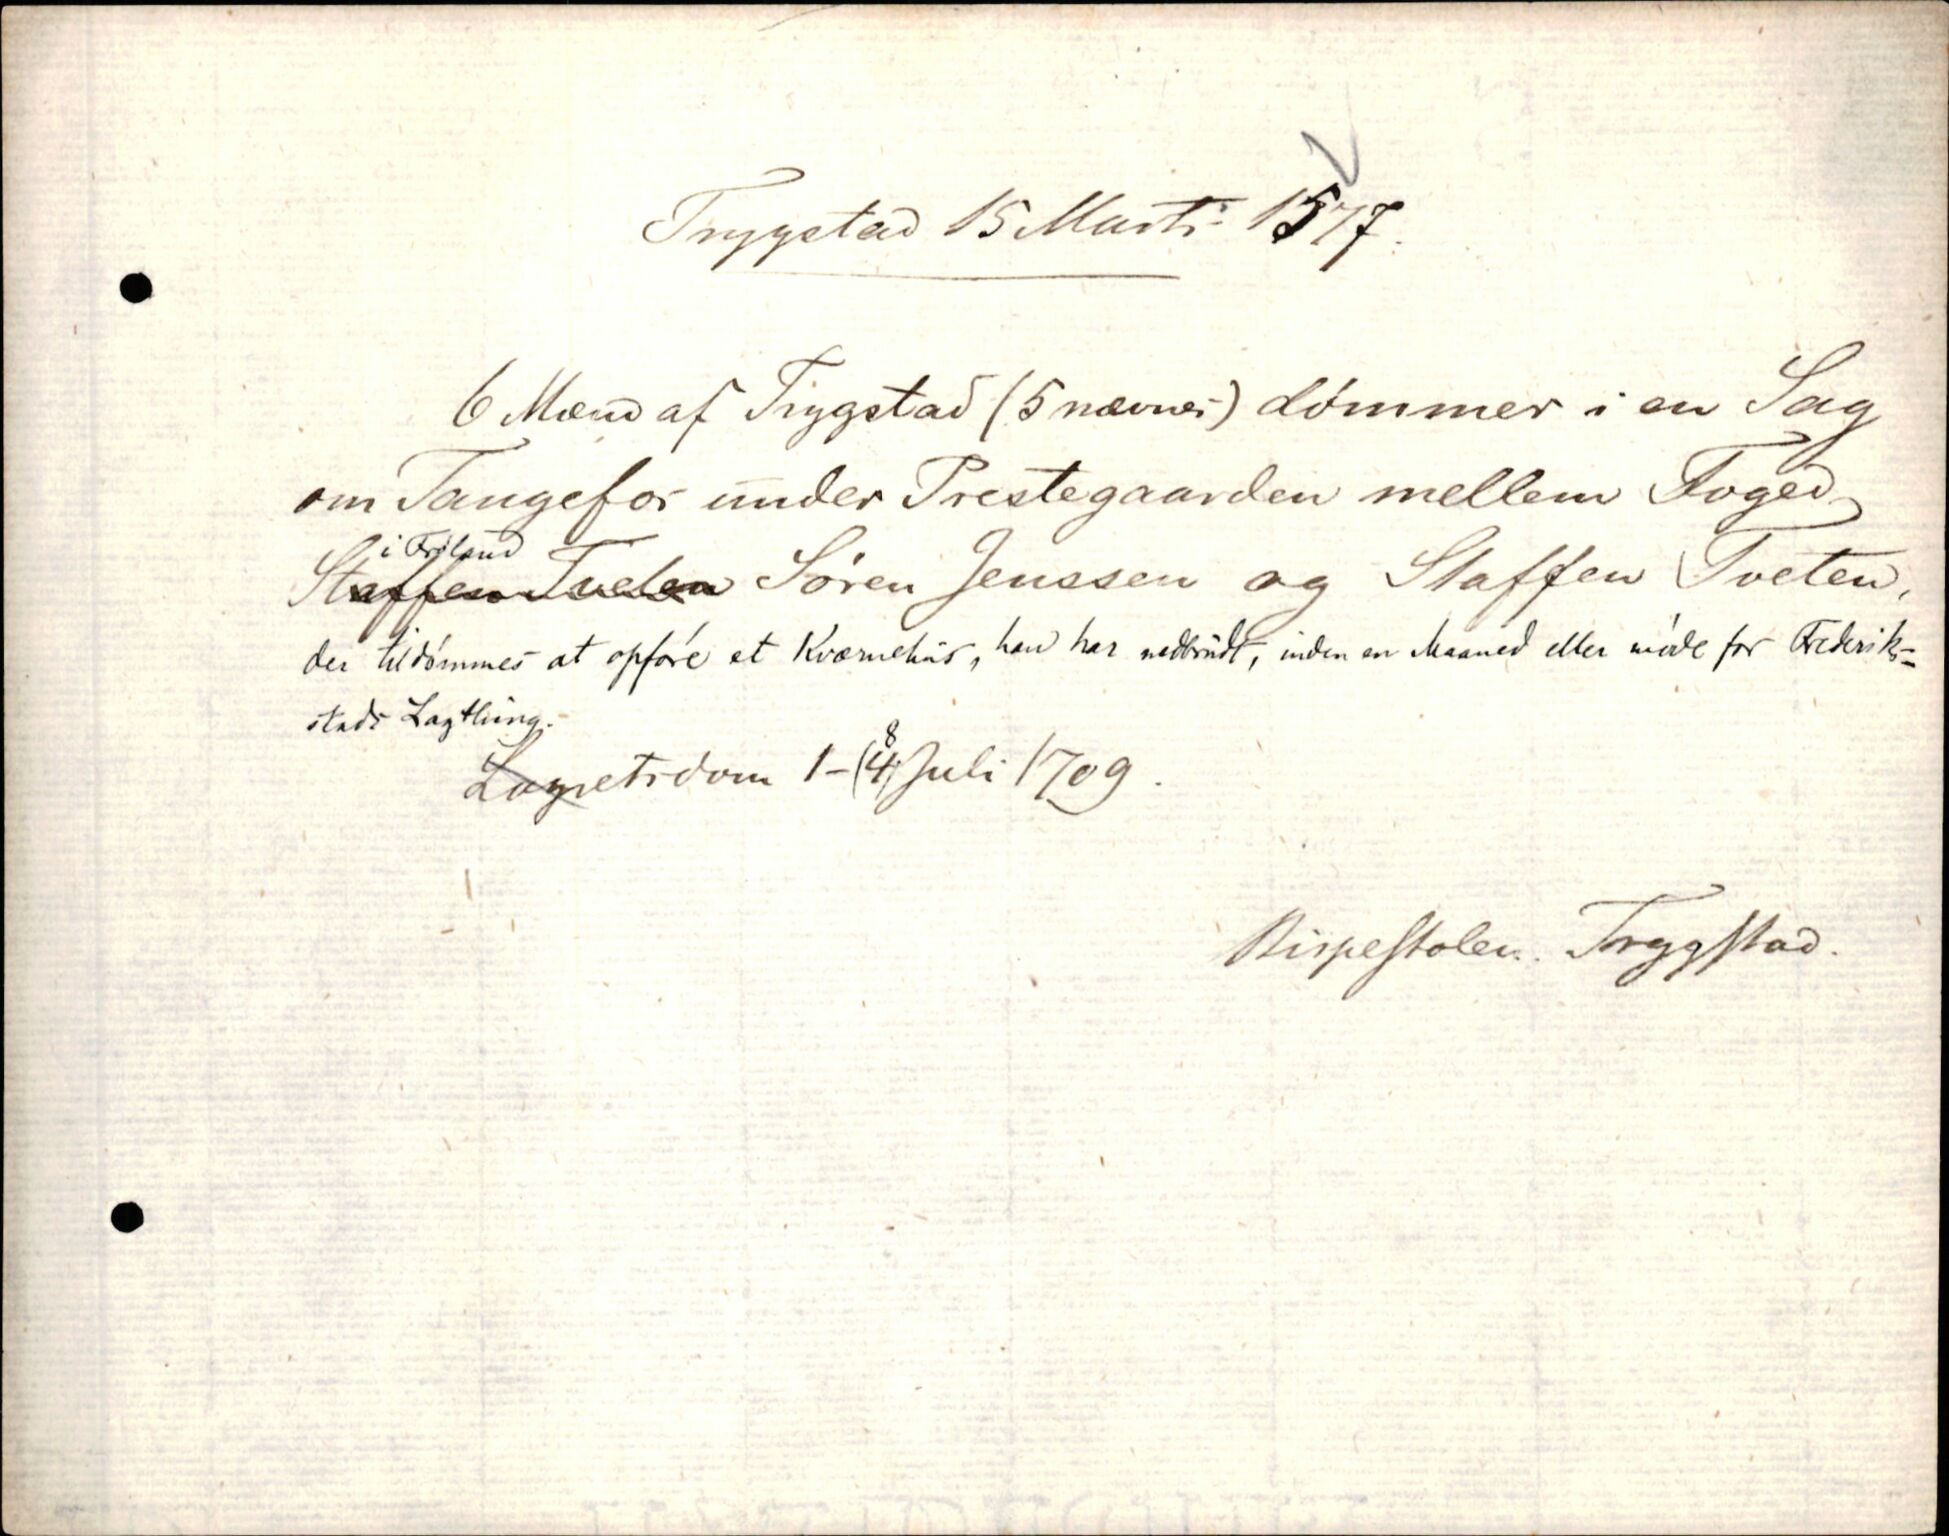 Trygstad 15 Marts 1577.
6 Mænd af Trygstad (5 nævnes) dømmer i en Sag
om Tangefos under Prestegaarden mellem Foged
i Fröland
Staffen Tveten Sören Jenssen og Staffen Tveten,
der tildömmes at opföre et Kværnehus, han har nedbrudt, inden en Maaned eller möde for Frederik-
stads Lagthing.
8
Lagretsdom 1-(4) Juli 1709.
Bispestolen. Trygstad.